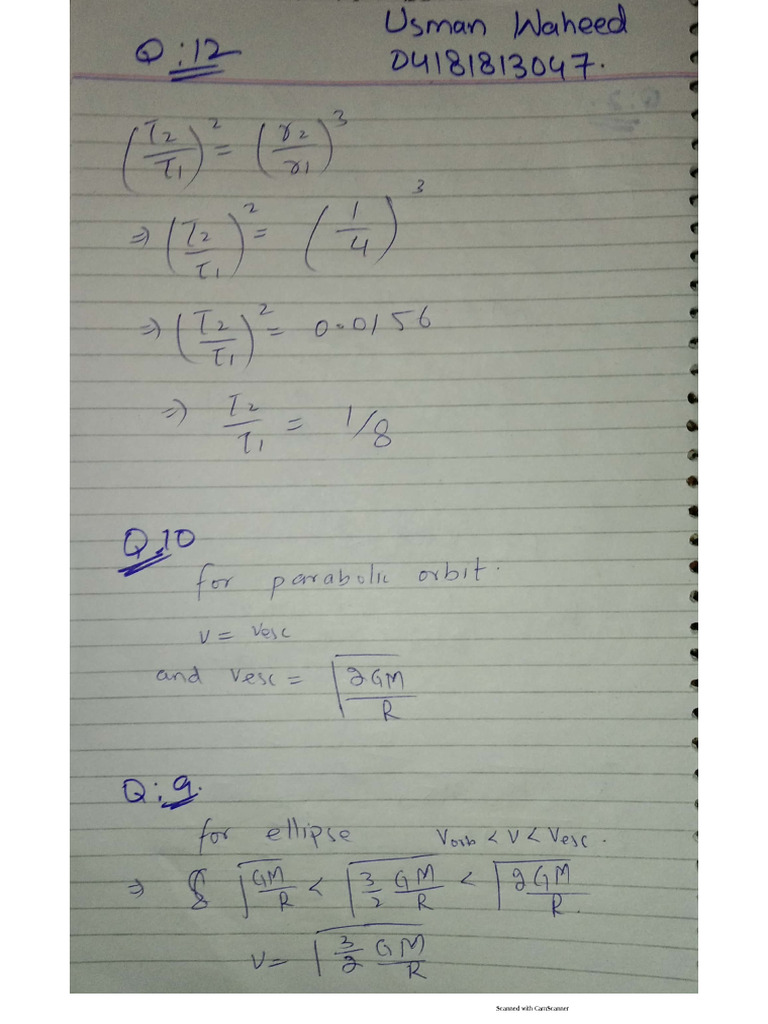 Usman Waheed
Q:12 D4181813047.
(T2/T1)^2 = (r2/r1)^3
⇒ (T2/T1)^2 = (1/4)^3
⇒ (T2/T1)^2 = 0.0156
⇒ T2/T1 = 1/8
Q.10
for parabolic orbit.
v = vesc
and vesc = √(2GM/R)
Q:9.
for ellipse Vorb < v < Vesc.
⇒ √(GM/R) < √(3/2 GM/R) < √(2GM/R).
v = √(3/2 GM/R)
Scanned with CamScanner